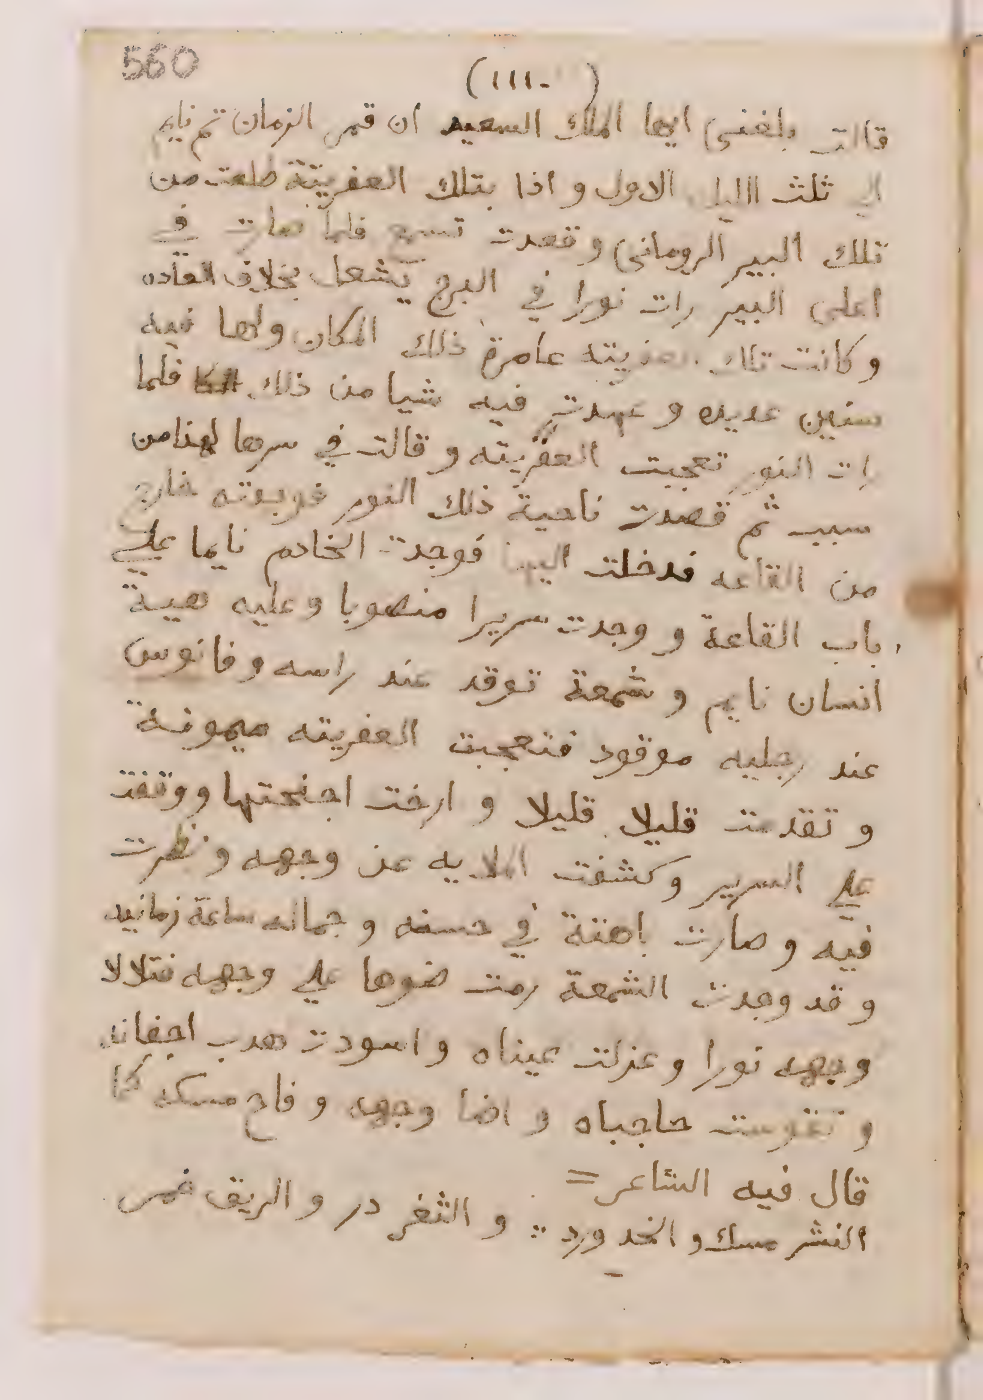 560
(١١١٠)
قالت بلغنى ايها الملك السعيد ان قمر الزمان تم نايم
الي ثلث الليل الاول و اذا بتلك العفريتة طلعت من
تلك البير الرومانى و قعدت تسمع فلما صارت في
اعلى البير رات نورا في البرج يشعل بخلاف العاده
و كانت تلك العفريته عامرة ذلك المكان ولها فيه
سنين عديده و عهدت فيه شيا من ذلك فلما
رات النور تعجبت العفريته و قالت في سرها لهذا من
سبب ثم قصدت ناحية ذلك النور فوجدته خارج
من القاعه فدخلت اليها فوجدت الخادم نايما علي
باب القاعة و وجدت سريرا منصوبا وعليه هيية
انسان نايم و شمعة توقد عند راسه و فانوس
عند رجليه موقود فتعجبت العفريته ميمونة
و تقدمت قليلا قليلا و ارخت اجنحتها ووقفت
علي السرير وكشفت الملايه عن وجهه و نظرت
فيه و صارت باهتة في حسنه و جماله ساعة زمانيه
و قد وجدت الشمعة رمت ضوها علي وجهه فتلالا
وجهه نورا و عزلت عيناه و اسودت هدب اجفانه
و تقوست حاجباه و اضا وجهه و فاح مسكه كما
قال فيه الشاعر =
النشر مسك و الخد ورد ∴ و الثغر در و الريق خمر